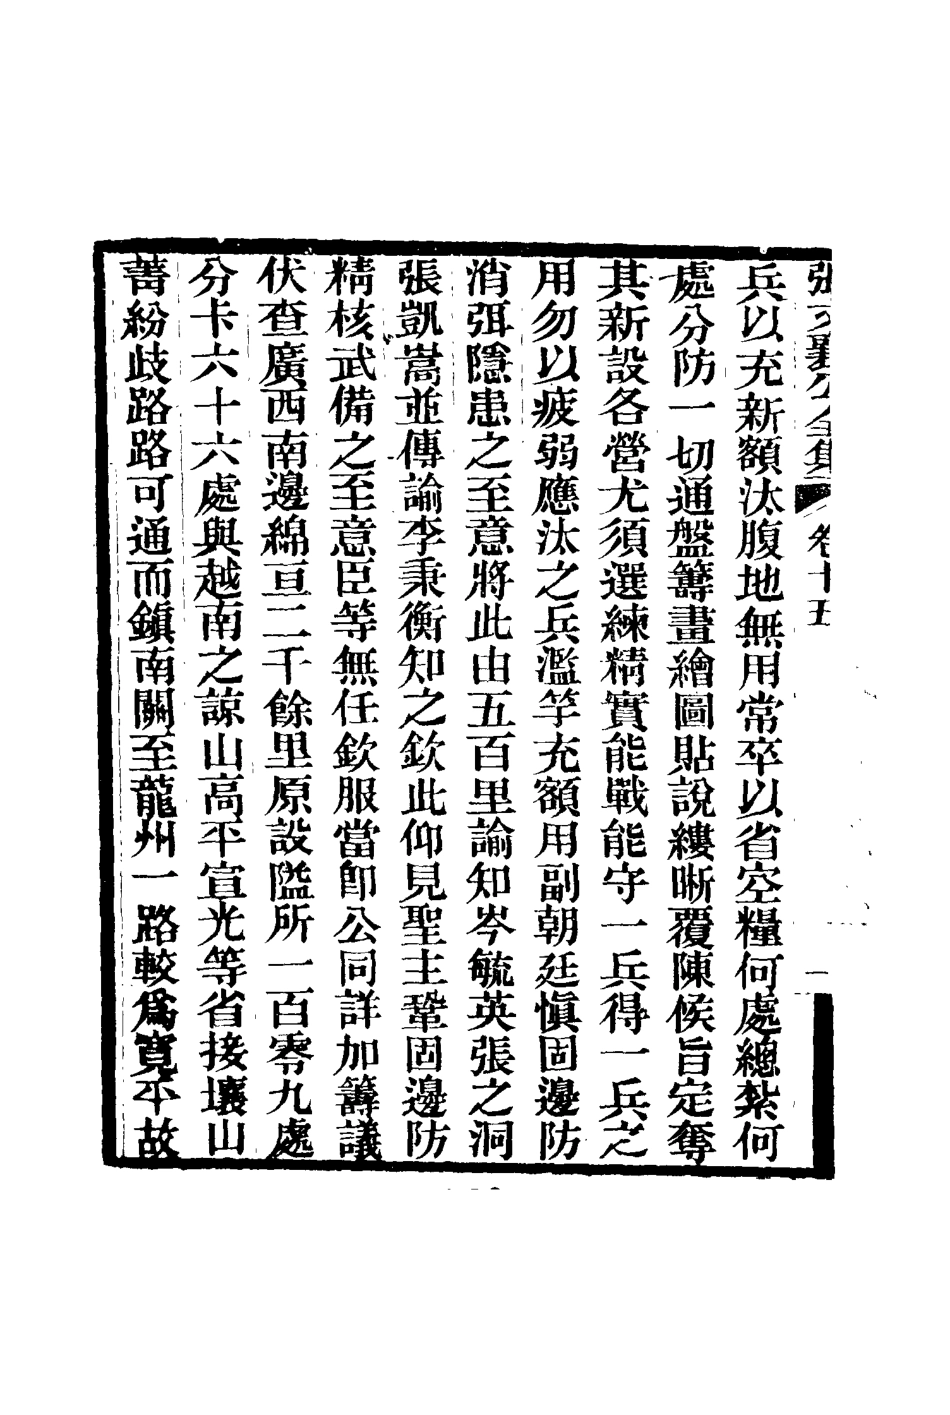 張文襄公全集 卷十五 一
兵以充新額汰腹地無用常卒以省空糧何處總紮何
處分防一切通盤籌畫繪圖貼說縷晰覆陳候旨定奪
其新設各營尤須選練精實能戰能守一兵得一兵之
用勿以疲弱應汰之兵濫竽充額用副朝廷愼固邊防
消弭隱患之至意將此由五百里諭知岑毓英張之洞
張凱嵩並傳諭李秉衡知之欽此仰見聖主鞏固邊防
精核武備之至意臣等無任欽服當卽公同詳加籌議
伏查廣西南邊綿亘二千餘里原設隘所一百零九處
分卡六十六處與越南之諒山高平宣光等省接壤山
菁紛歧路路可通而鎭南關至龍州一路較爲寬平故